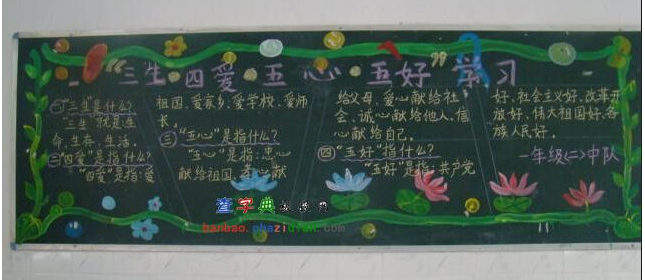 “三生·四爱·五心·五好”学习
㊀“三生”是什么？
“三生”就是：生
命、生存、生活。
㊂“四爱”是指什么？
“四爱”是指：爱
祖国、爱家乡、爱学校、爱师
长。
㊂“五心”是指什么？
“五心”是指：忠心
献给祖国、孝心献
给父母、爱心献给社
会、诚心献给他人、信
心献给自己。
㊃“五好”指什么？
“五好”是指：共产党
好、社会主义好、改革开
放好、伟大祖国好、各
族人民好。
一年级(二)中队
查字典
hanbao.chazidian.com